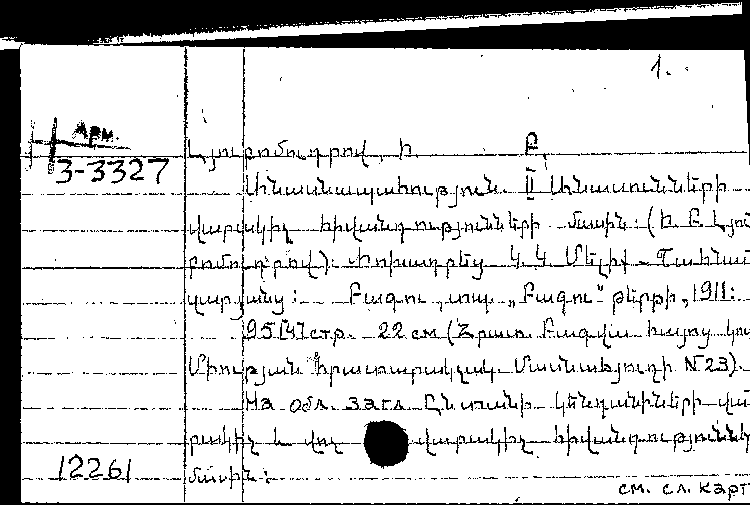 1.
Арм.
3-3327
Լյուբոմուդրով, Ի. Բ.
Անասնապահություն. II Անասունների
վարակիչ հիվանդությունների մասին: (Ի. Բ. Լյու
բոմուդրով): Փոխադրեց Կ. Կ. Մելիք-Շահնա
զարյանց: Բագու, տպ. „Բագու" թերթի, 1911:
95 [4] стр. 22 см (Հրատ. Բագվա հայոց կու
Միության հրատարակչակ. Մասնաճյուղի N 23).
На обл. загл. Ընտանի կենդանիների վա
րակիչ և վոչ վարակիչ հիվանդություննե
12261 մասին:
см. сл. карт